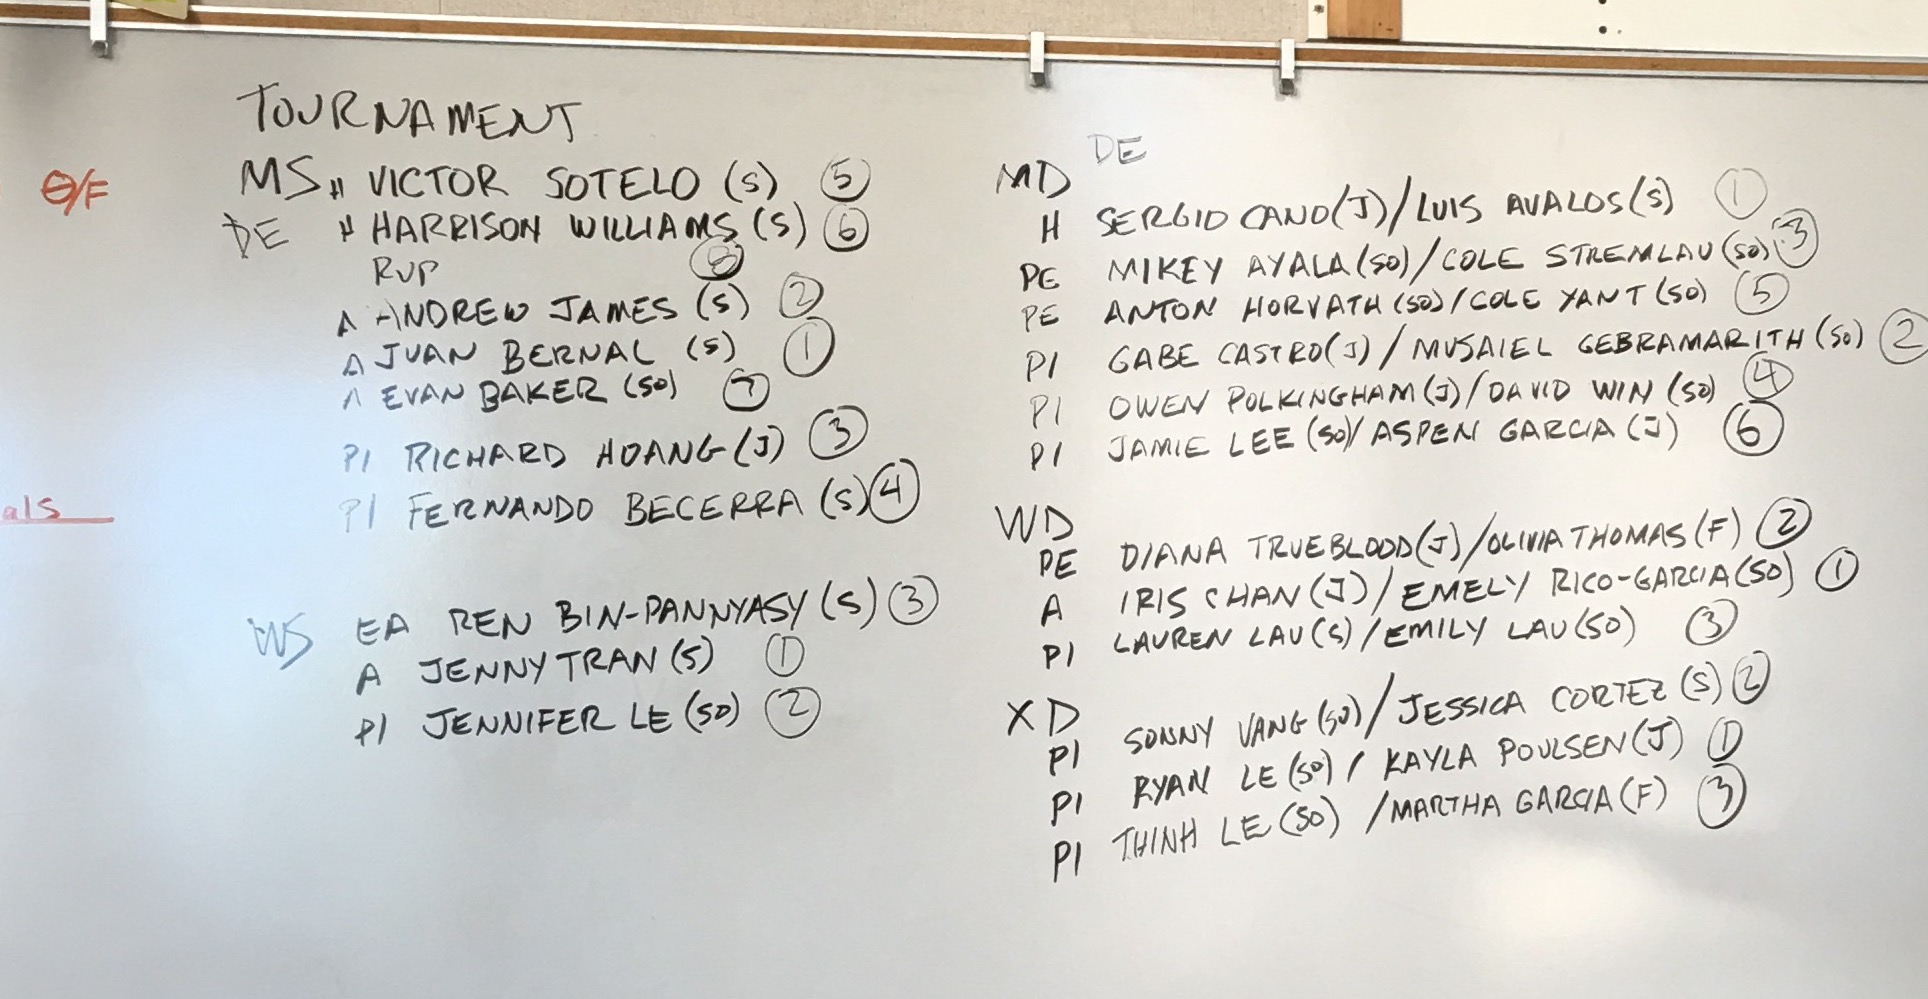 TOURNAMENT
Θ/F
MS H VICTOR SOTELO (S) 5
DE H HARRISON WILLIAMS (S) 6
RVP 8
A ANDREW JAMES (S) 2
A JUAN BERNAL (S) 1
A EVAN BAKER (SO) 7
PI RICHARD HOANG (J) 3
PI FERNANDO BECERRA (S) 4
als
WS EA REN BIN-PANNYASY (S) 3
A JENNY TRAN (S) 1
PI JENNIFER LE (SO) 2
DE
MD
H SERGIO CANO (J)/LUIS AVALOS (S) 1
PE MIKEY AYALA (SO)/COLE STREMLAU (SO) 3
PE ANTON HORVATH (SO)/COLE YANT (SO) 5
PI GABE CASTRO (J)/MUSAIEL GEBRAMARITH (SO) 2
PI OWEN POLKINGHAM (J)/DAVID WIN (SO) 4
PI JAMIE LEE (SO)/ASPEN GARCIA (J) 6
WD
PE DIANA TRUEBLOOD (J)/OLIVIA THOMAS (F) 2
A IRIS CHAN (J)/EMELY RICO-GARCIA (SO) 1
PI LAUREN LAU (S)/EMILY LAU (SO) 3
XD
PI SONNY VANG (SO)/JESSICA CORTEZ (S) 2
PI RYAN LE (SO)/KAYLA POULSEN (J) 1
PI THINH LE (SO)/MARTHA GARCIA (F) 3